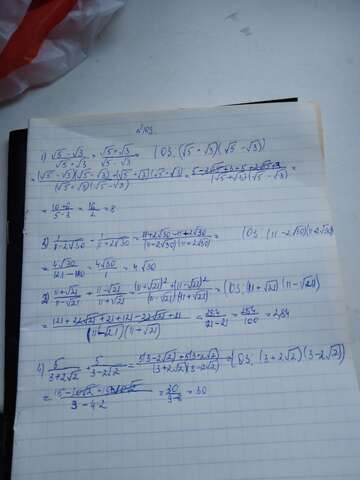 № 109.
1) (√5 - √3)/(√5 + √3) + (√5 + √3)/(√5 - √3) = (ОЗ. (√5 + √3)(√5 - √3))
= ((√5 - √3)(√5 - √3) + (√5 + √3)(√5 + √3))/((√5 + √3)(√5 - √3)) =
= /(5 - 3) = 16/2 = 8
3) 1/(11 - 2√30) - 1/(11 + 2√30) = (11 + 2√30 - 11 + 2√30)/((11 - 2√30)(11 + 2√30)) = (ОЗ. (11 - 2√30)(11 + 2√30)
= 4√30/ = 4√30/1 = 4√30
2) (11 + √21)/(11 - √21) + (11 - √21)/(11 + √21) = ((11 + √21)² + (11 - √21)²)/((11 - √21)(11 + √21)) = (ОЗ. (11 + √21)(11 - √21)
= (121 + 22√21 + 21 + 121 - 22√21 + 21)/((11 - √21)(11 + √21)) = 284/(121 - 21) = 284/100 = 2,84
4) 5/(3 + 2√2) + 5/(3 - 2√2) = (5(3 - 2√2) + 5(3 + 2√2))/((3 + 2√2)(3 - 2√2)) = (ОЗ. (3 + 2√2)(3 - 2√2)
= /(9 - 4·2) = 30/(9 - 8) = 30